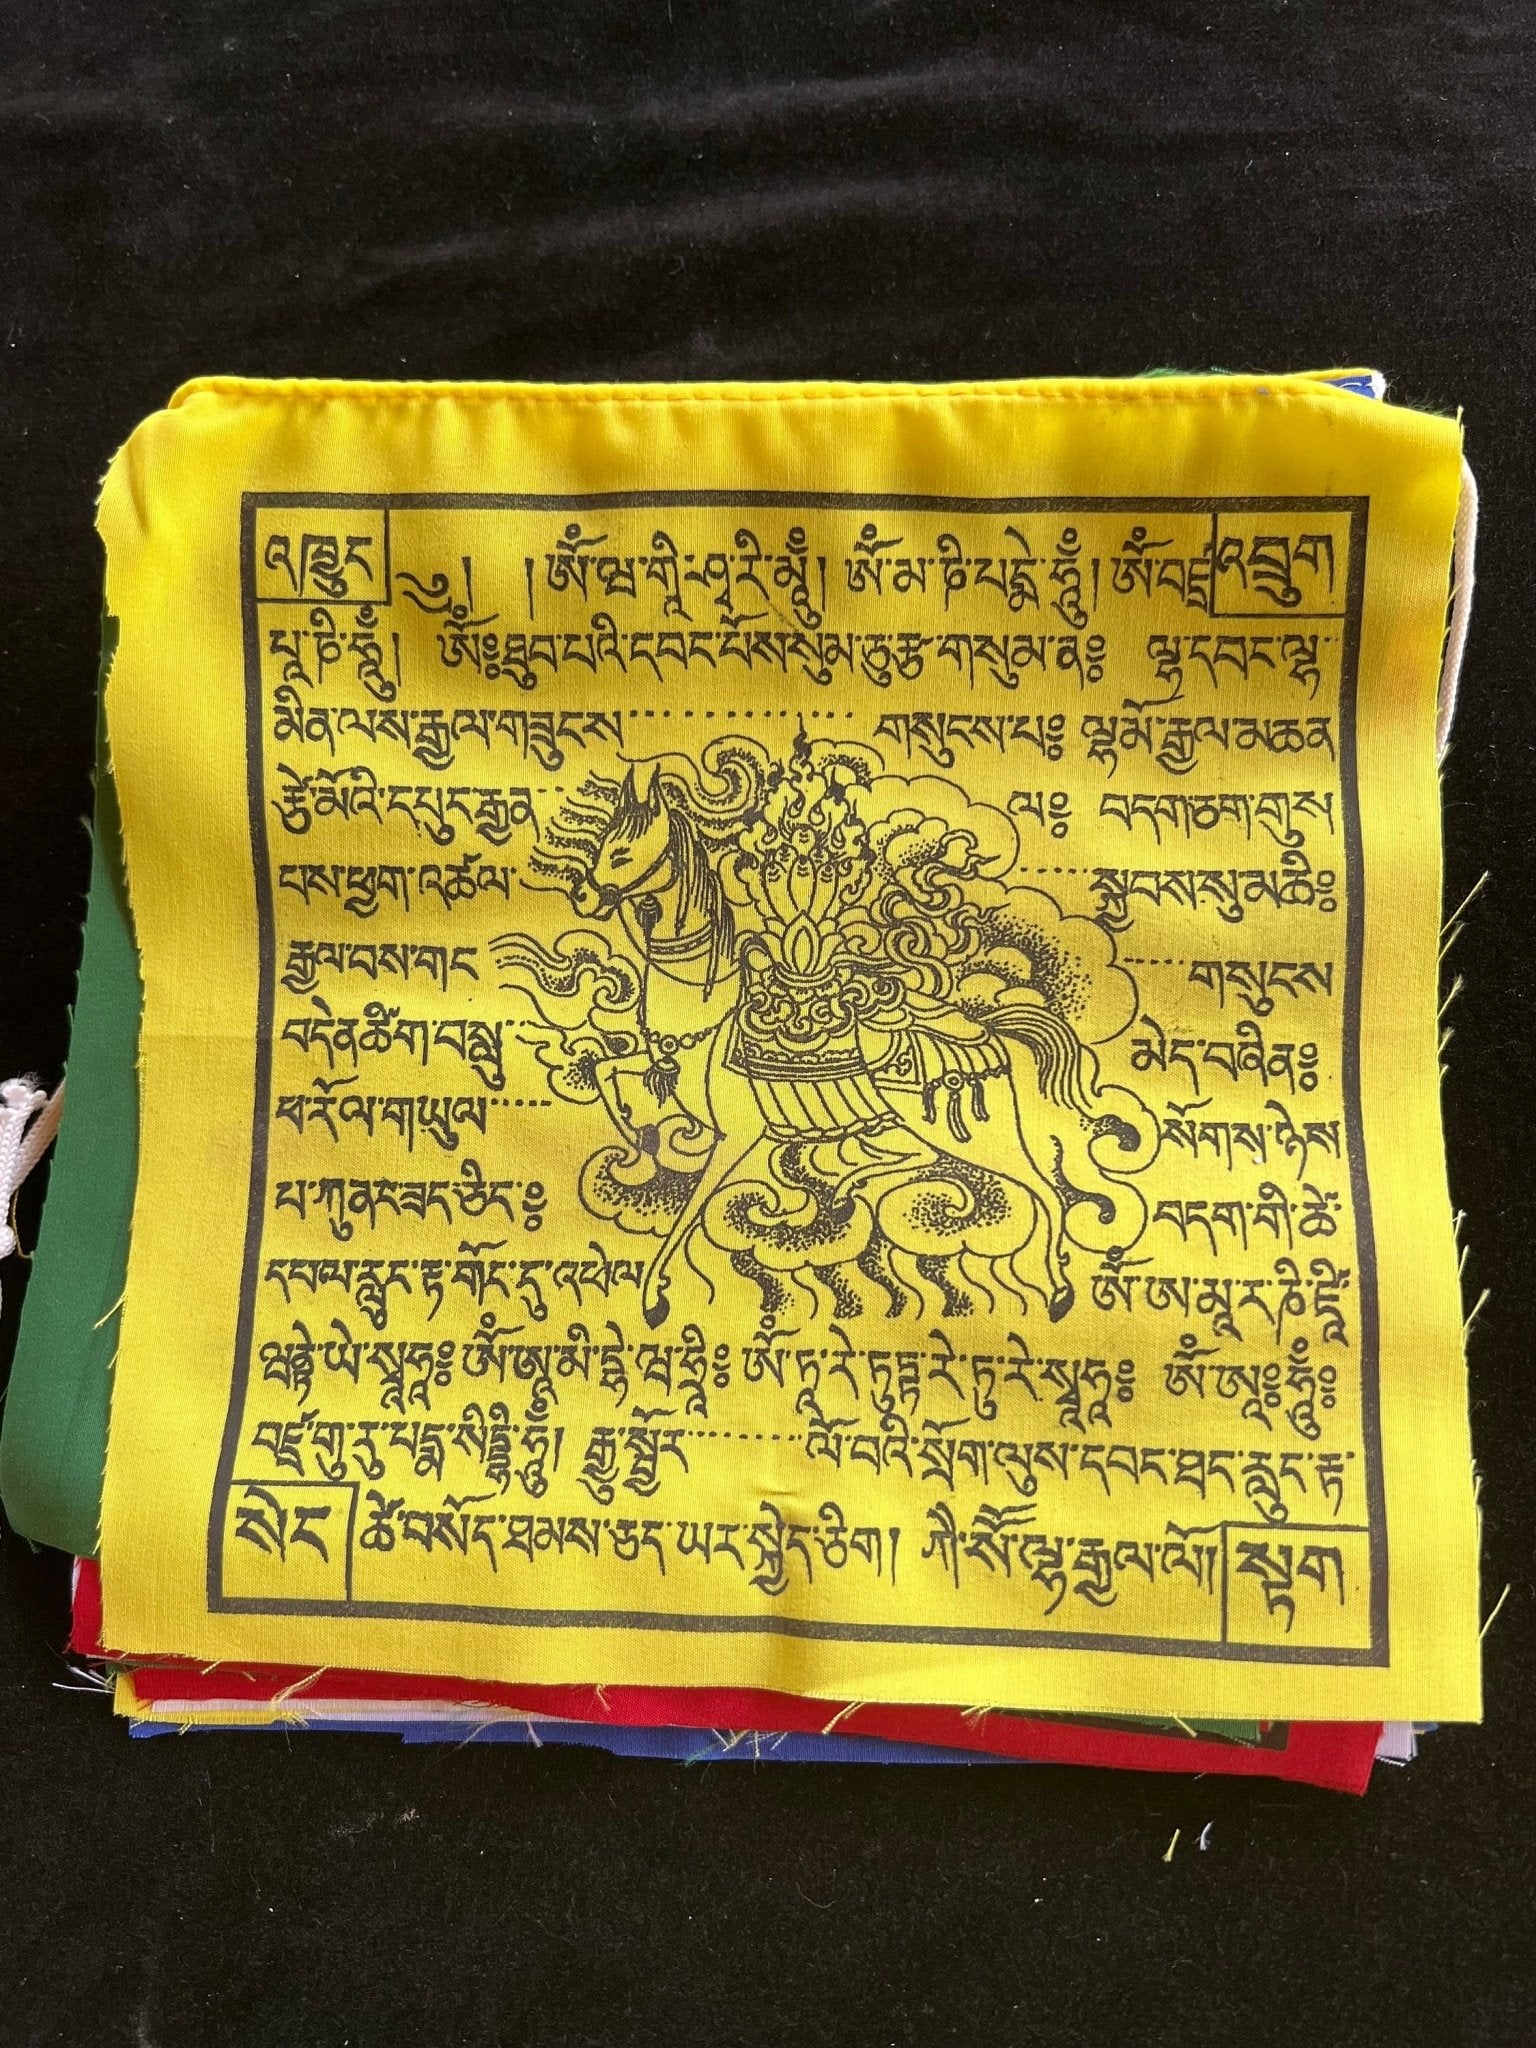 འཁྱུང ༄། །ༀ་ཝ་གཱི་ཤྭ་རི་མཱུྃ། ༀ་མ་ཎི་པདྨེ་ཧཱུྃ། ༀ་བཛྲ འབྲུག
པཱ་ཎི་ཧཱུྃ། ༀ༔ ཐུབ་པའི་དབང་པོས་སུམ་ཅུ་རྩ་གསུམ་ན༔ ལྷ་དབང་ལྷ་
མིན་ལས་རྒྱལ་གཟུངས་ གསུངས་པ༔ ལྷ་མོ་རྒྱལ་མཚན
རྩེ་མོའི་དཔུང་རྒྱན་ ལ༔ བདག་ཅག་གུས
པས་ཕྱག་འཚལ་ སྐྱབས་སུ་མཆི༔
རྒྱལ་བས་གང གསུངས
བདེན་ཚིག་བསླུ་ མེད་བཞིན༔
ཕ་རོལ་གཡུལ་ སོགས་ཉེས
པ་ཀུན་ཟད་ཅིང་༔ བདག་གི་ཚེ་
དཔལ་རླུང་རྟ་གོང་དུ་འཕེལ ༀ་ཨ་མཱ་ར་ཎི་ཛཱི་
ཝནྟེ་ཡེ་སྭཱཧཱ༔ ༀ་ཨཱ་མི་དྷེ་ཝ་ཧྲཱི༔ ༀ་ཏཱ་རེ་ཏུཏྟཱ་རེ་ཏུ་རེ་སྭཱཧཱ༔ ༀ་ཨཱཿ་ཧཱུྃ༔
བཛྲ་གུ་རུ་པདྨ་སིདྡྷི་ཧཱུྃ། རྒྱུ་སྦྱོར་ ལོ་བའི་སྲོག་ལུས་དབང་ཐང་རླུང་རྟ་
སེང ཚེ་བསོད་ཐམས་ཅད་ཡར་སྐྱེད་ཅིག། ཀི་སོ་ལྷ་རྒྱལ་ལོ། སྟག